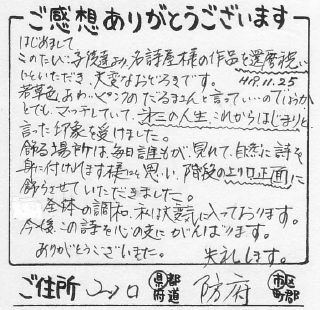 ご感想ありがとうございます
はじめまして。
このたび、子供達より、名詩屋様の作品を還暦祝い
にといただき、大変なおどろきです。 H18.11.25
若草色、あわいピンクのだるまさんと言っていいのでしょうか
とても、マッチしていて、第二の人生、これからはじまりと
言った印象を受けました。
飾る場所は、毎日誰もが、見れて、自然に詩を
身に付けれます様にと思い、階段の上り口正面に
飾らせていただきました。
全体の調和、私は大変気に入っております。
今後、この詩を心の支にがんばります。
ありがとうございました。 失礼します。
ご住所 山口 都道府県 防府 市区町郡